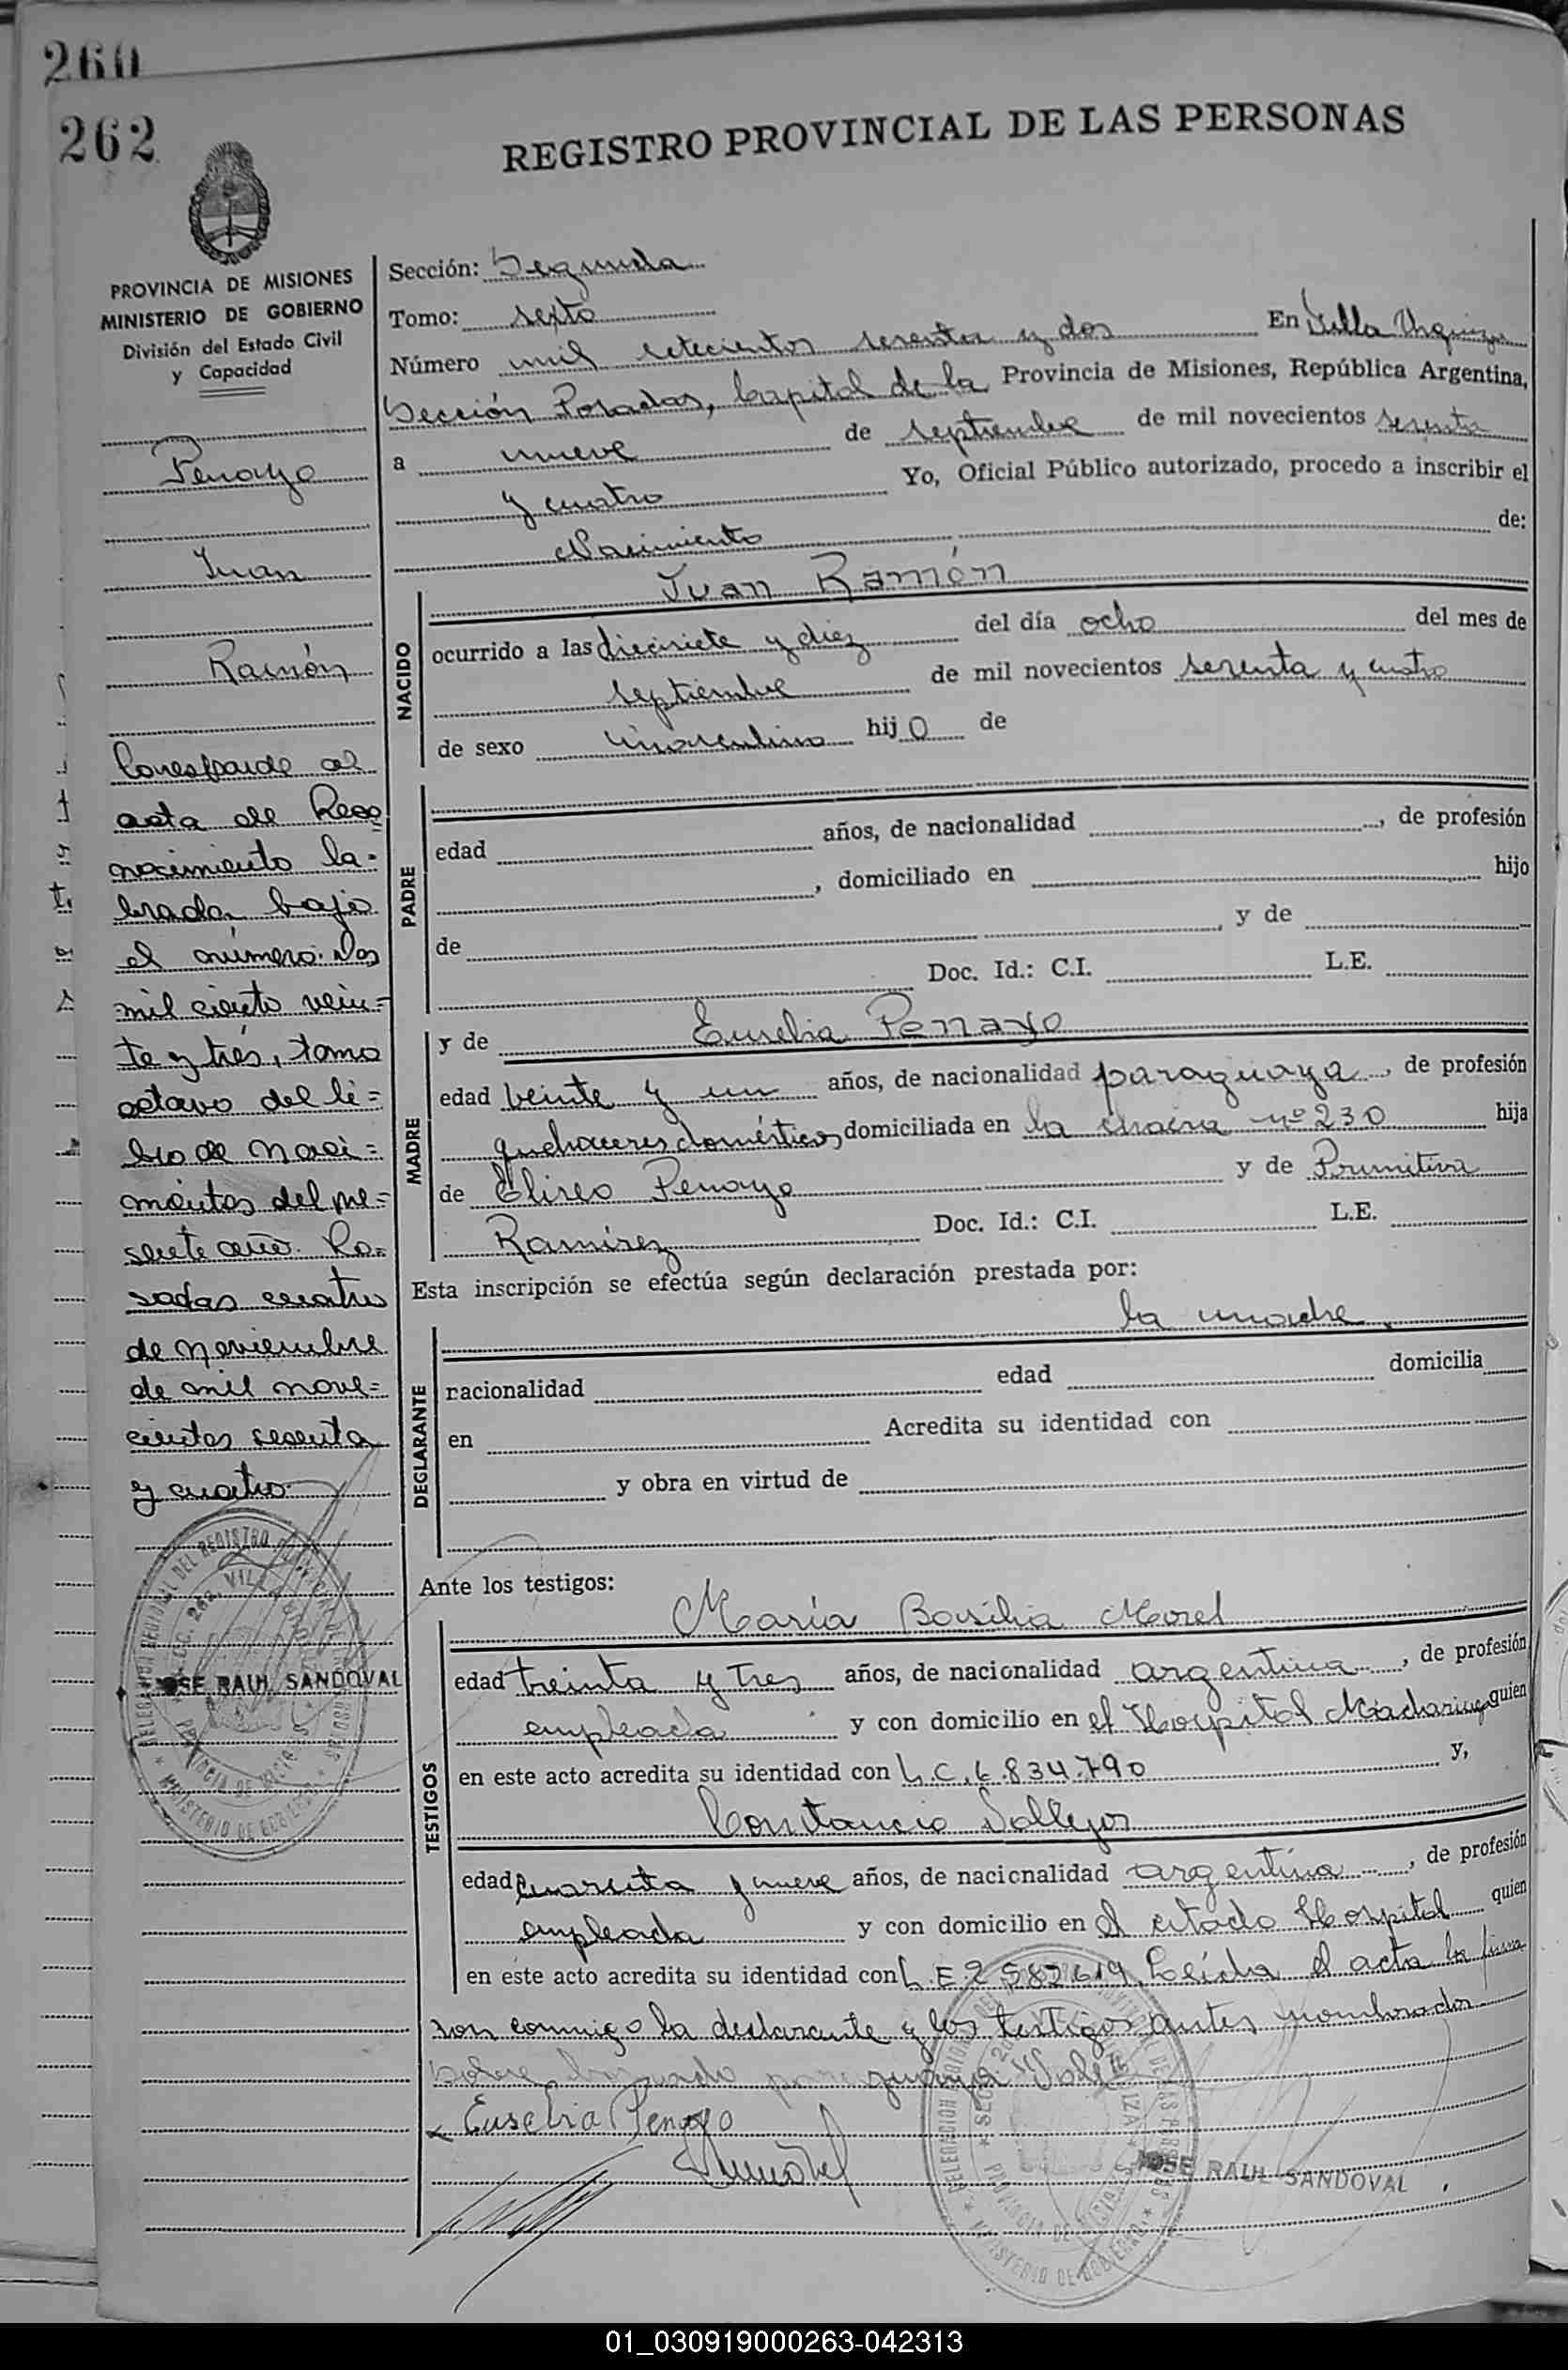 260
262
REGISTRO PROVINCIAL DE LAS PERSONAS
PROVINCIA DE MISIONES
MINISTERIO DE GOBIERNO
División del Estado Civil
y Capacidad
Penayo
Juan
Ramón
Corresponde al
acta de Reco
nocimiento la-
brada bajo
el número: Dos
mil ciento vein=
te y trés, tomo
octavo del li=
bro de Naci=
mientos del pre=
sente año. Po=
sadas cuatro
de Noviembre
de mil nove=
cientos sesenta
y cuatro
JOSE RAUL SANDOVAL
Sección: Segunda
Tomo: sexto
Número mil setecientos sesenta y dos En Villa Urquiza
Sección Posadas, Capital de la Provincia de Misiones, República Argentina,
a nueve de septiembre de mil novecientos sesenta
y cuatro Yo, Oficial Público autorizado, procedo a inscribir el
Nacimiento de:
NACIDO
Juan Ramón
ocurrido a las diecisiete y diez del día ocho del mes de
septiembre de mil novecientos sesenta y cuatro
de sexo masculino hijo de
PADRE
edad años, de nacionalidad , de profesión
, domiciliado en hijo
de , y de
Doc. Id.: C.I. L.E.
MADRE
y de Eusebia Penayo
edad veinte y un años, de nacionalidad paraguaya, de profesión
quehaceres domésticos domiciliada en la chacra nº 230 hija
de Eliseo Penayo y de Primitiva
Ramírez Doc. Id.: C.I. L.E.
Esta inscripción se efectúa según declaración prestada por:
DEGLARANTE
la madre.
racionalidad edad domicilia
en Acredita su identidad con
y obra en virtud de
Ante los testigos:
TESTIGOS
María Basilia Morel
edad treinta y tres años, de nacionalidad argentina, de profesión
empleada y con domicilio en el Hospital Madariaga quien
en este acto acredita su identidad con L.C. 6.834.790 y,
Constancio Vallejos
edad cuarenta y nueve años, de nacionalidad argentina, de profesión
empleada y con domicilio en el citado Hospital quien
en este acto acredita su identidad con L.E. 2582619. Leída el acta la firma
son conmigo la declarante y los testigos antes nombrados
Sobre borrado paraguaya Vale
Eusebia Penayo
JOSE RAUL SANDOVAL
01_030919000263-042313